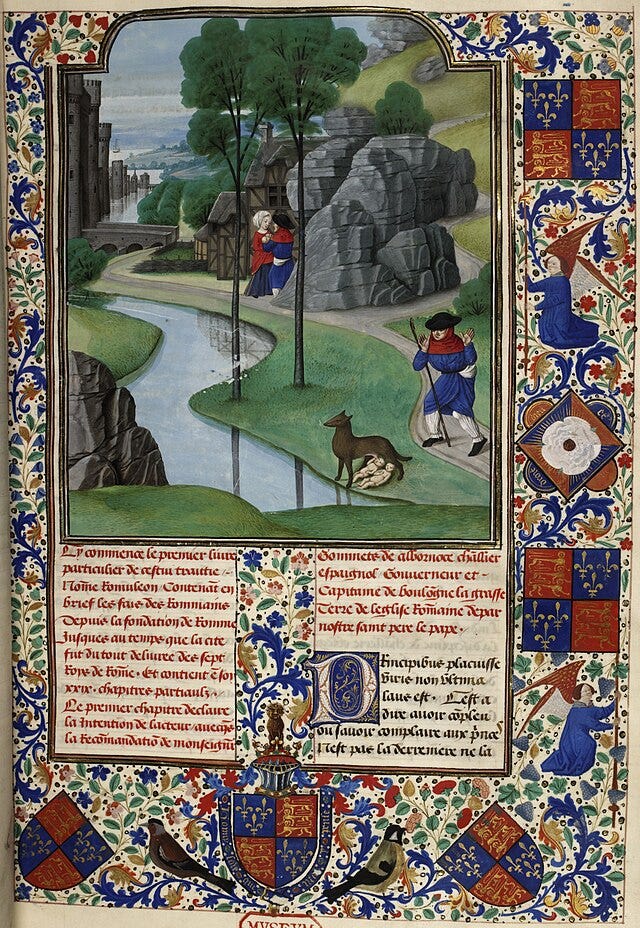 Cy commence le premier liure
particulier de cestui traittie
Nōme Romuleon. Contenāt en
brief les fais des Rommains
Depuis la fondation de Romme
Jusques au temps que la cite
fut du tout deliuree des sept
Roys de Rōme. Et contient e soy
xxix. chapitres partiaulx.
Le premier chapitre declaire
la Intention de lacteur auecqs
la Recōmandatiō de monseignr
Gommets de albornoce chāllier
espaignol Gouuerneur et
Capitaine de boulogne la grasse
Terre de leglise Rōmaine depar
nostre saint pere le pape.
Principibus placuisse
viris non vltima
laus est. Cest a
dire auoir cōpleu
ou sauoir complaire aux prīces
nest pas la derreniere ne la
MVSEVM